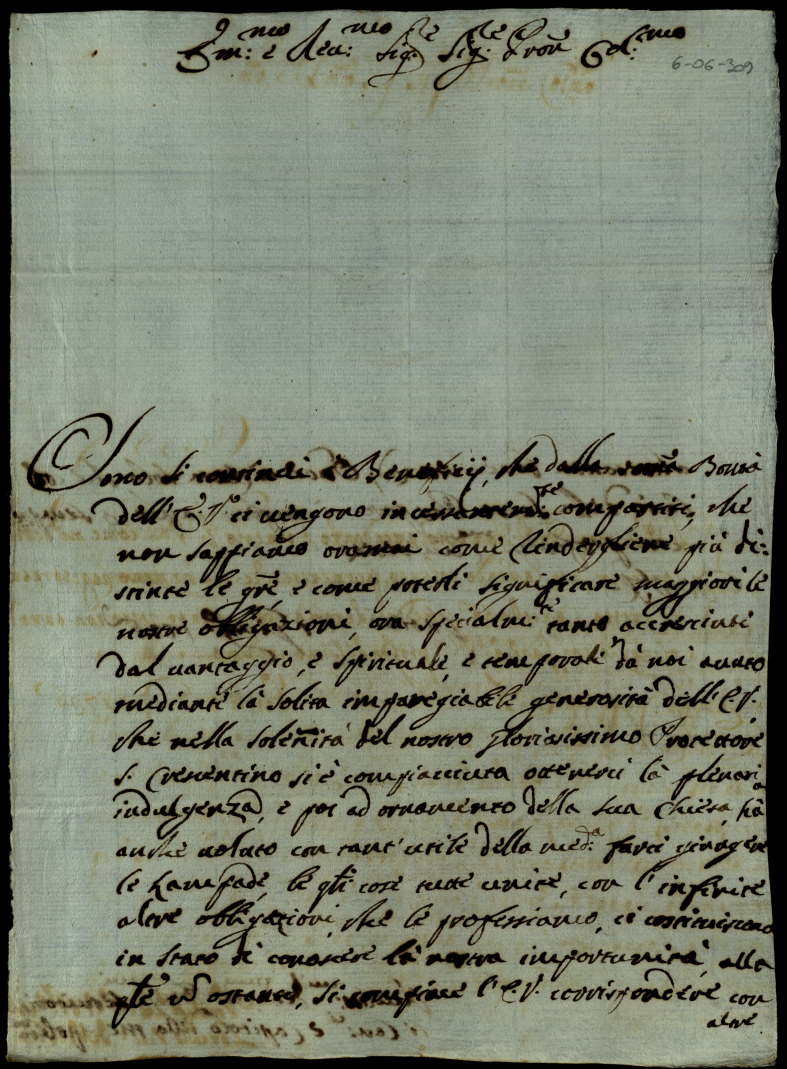 Em:mo e Rev:mo Sig:re Sig:re Pron Col:mo
6-06-309
Sono sì continui i Beneficij, che dalla Bontà
dell' E. V. ci vengono incessantem:te compartiti, che
non sappiamo oramai come rendergliene più di:
stinte le grē, e come poterli significare maggiori le
nostre obligazioni, ora specialm:te tanto accresciute
dal vantaggio, e spirituale, e temporale dà noi avuto
mediante la solita imparegiabile generosità dell' E. V.
che nella soleñità del nostro gloriosissimo Protettore
S. Crescentino si è compiacciuta ottenerci la plenaria
indulgenza, e poi ad ornamento della sua Chiesa, hà
anche voluto con tant' utile della med:a farci giungere
le Lampade, le qli cose tutte unite, con l' infinite
altre obbligazioni, che le professiamo, ci costituiscono
in stato di conoscere la nostra importunità, alla
qle ostante, si compiace l' E. V. corrispondere con
altre